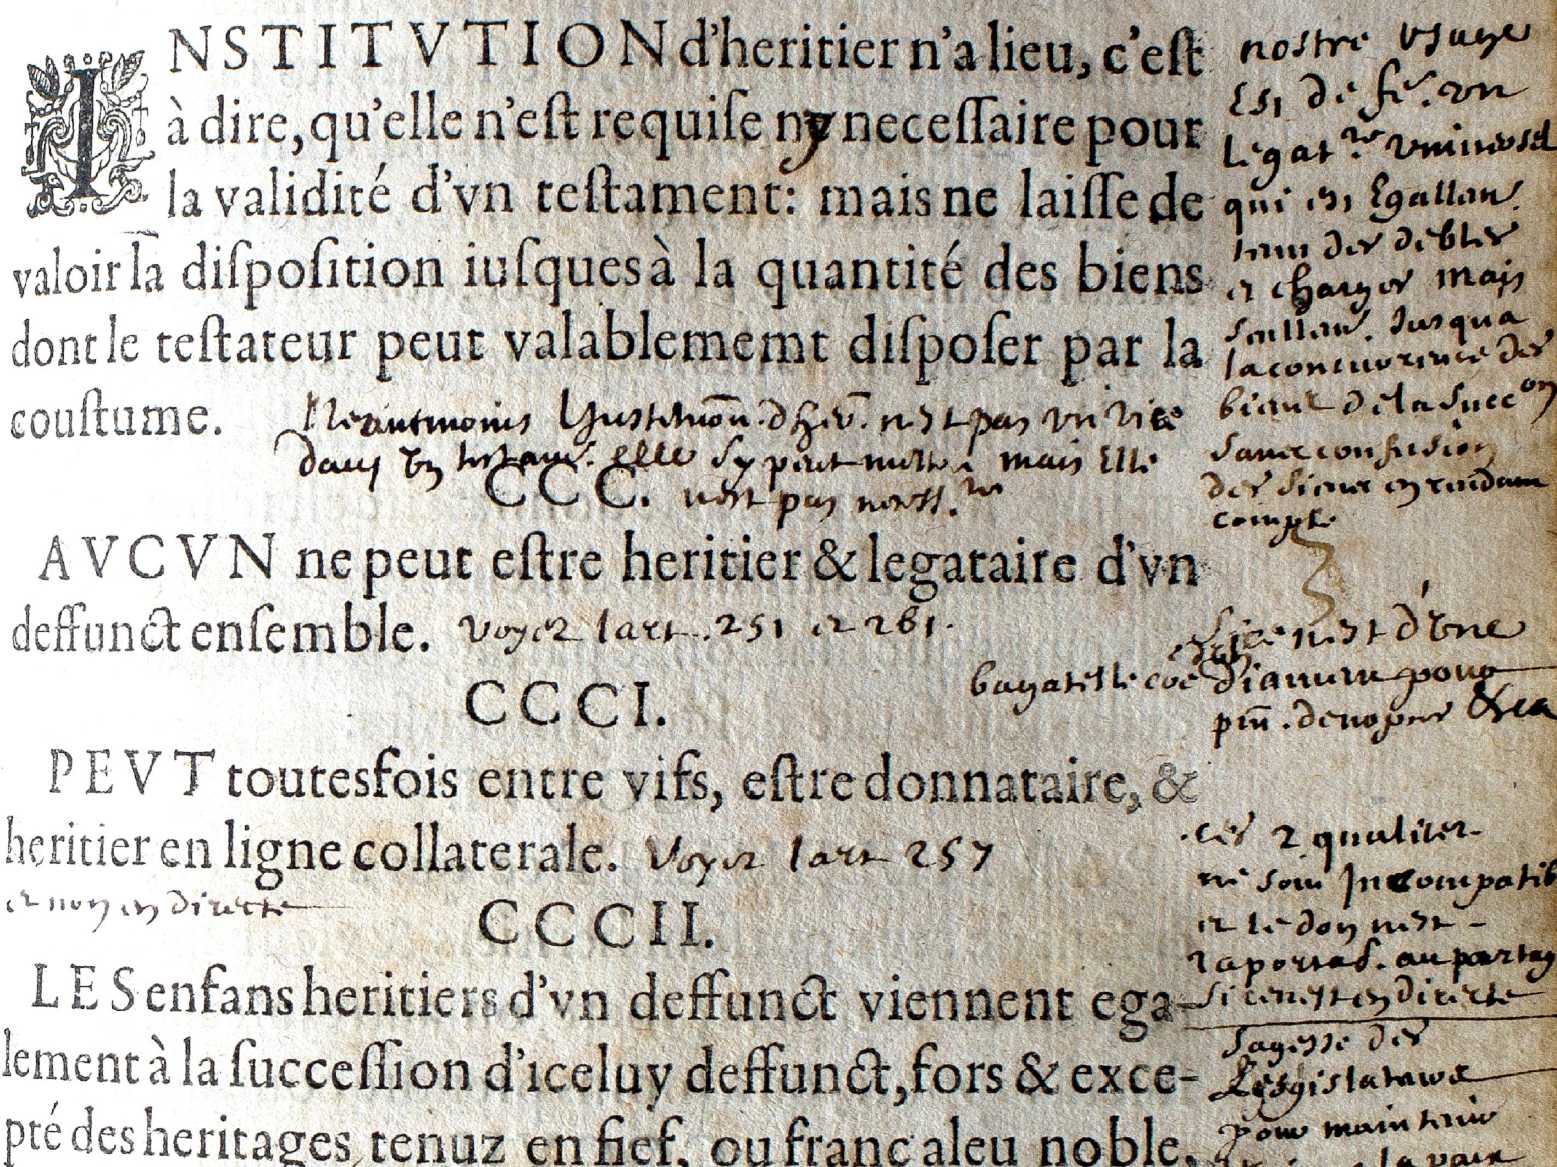 INSTITVTION d'heritier n'a lieu, c'eſt
à dire, qu'elle n'eſt requiſe ny neceſſaire pour
la validité d'vn teſtament: mais ne laiſſe de
valoir la diſpoſition iuſques à la quantité des biens
dont le teſtateur peut valablememt diſpoſer par la
couſtume.
nostre vsage
Est de fe. vn
legat.re vniuersel
qui est Egallem.
tenu des debtes
et charges mais
seullem. Jusqua
la concurrence des
biens de la succ.on
sans confusion
des siens en rendant
compte
Neantmoins Linstitution d'her. nest pas un vice
dans un testam. elle sy peut mettre mais Elle
nest pas necess.re
CCC.
AVCVN ne peut eſtre heritier & legataire d'vn
deffunct enſemble. Voyez lart. 251 et 261.
si ce nest d'vne
bagatelle coe
CCCI.
PEVT toutesfois entre vifs, eſtre donnataire, &
heritier en ligne collaterale. Voyez lart 257
et non en directe
ces 2 qualitez
ne sont Incompatib
et le don nest
raportab. au partag
si ce nest en directe
CCCII.
LES enfans heritiers d'vn deffunct viennent ega-
lement à la ſucceſſion d'iceluy deffunct, fors & exce-
pté des heritages tenuz en fief, ou franc aleu noble,
sagesse des
Legislateurs
pour maintenir
la paix